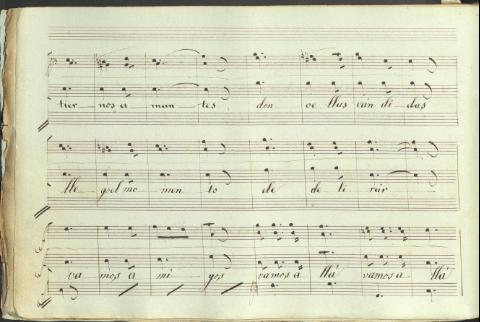 tier nos a man tes don ce llas cán di das
lle gó el mo men to de de li rár
va mos a mi gos vamos a llá vamos a llá